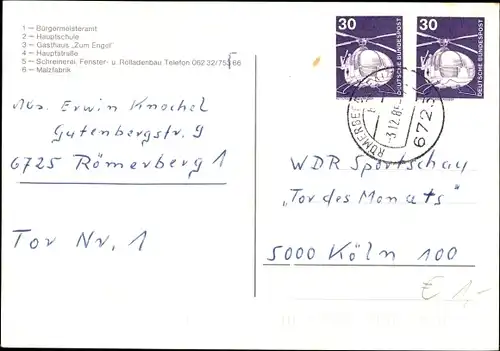 1 — Bürgermeisteramt
2 — Hauptschule
3 — Gasthaus „Zum Engel"
4 — Hauptstraße
5 — Schreinerei, Fenster- u. Rolladenbau Telefon 062 32/753 66
6 — Malzfabrik
30
DEUTSCHE BUNDESPOST
30
DEUTSCHE BUNDESPOST
6725
Abs. Erwin Knochel
Gutenbergstr. 9
6725 Römerberg 1
Tor Nr. 1
WDR Sportschau
„Tor des Monats"
5000 Köln 100
€ 1,-